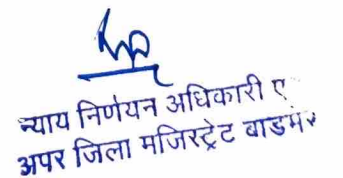 न्याय निर्णयन अधिकारी ए
अपर जिला मजिस्ट्रेट बाडमेर